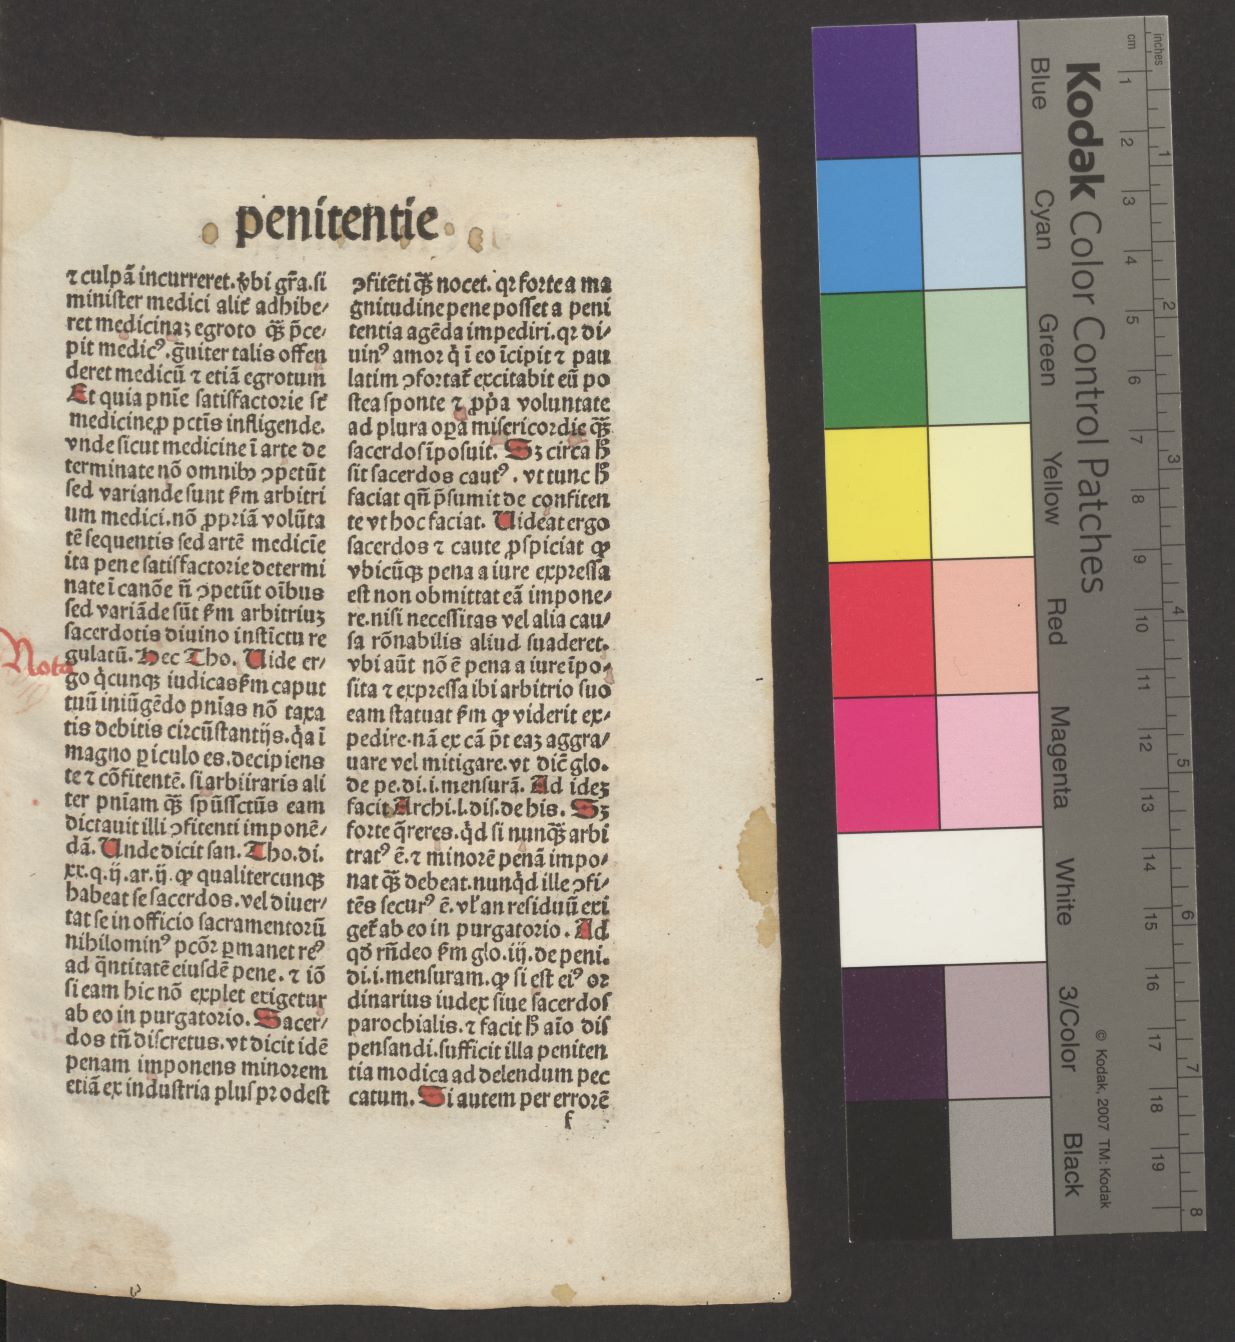 penitentie
⁊ culpã incurreret. v̾bi gr̃a. si
minister medici alit̾ adhibe/
ret medicinaꝫ egroto qꝫ̃ p̃ce/
pit medicꝰ. g̃uiter talis offen
deret medicũ ⁊ etiã egrotum
Et quia pnĩe satisfactorie st̾
medicine ꝓ pctĩs infligende.
vnde sicut medicine ĩ arte de
terminate nõ omnibꝰ ꝯpetũt
sed variande sunt ẜm arbitri
um medici. nõ ꝓpriã volũta
tẽ sequentis sed artẽ medicĩe
ita pene satisfactorie determi
nate ĩ canõe ñ ꝯpetũt oĩbus
sed variãde sũt ẜm arbitriuꝫ
sacerdotis diuino instĩctu re
Nota
gulatũ. Hec Tho. Uide er/
go q̃cunqꝫ iudicas ẜm caput
tuũ iniũgẽdo pnĩas nõ taxa
tis debitis circũstantijs. q̃a ĩ
magno ꝑiculo es. decipiens
te ⁊ cõfitentẽ. si arbiiraris ali
ter pniam qꝫ̃ spũssctũs eam
dictauit illi ꝯfitenti imponẽ/
dã. Unde dicit san. Tho. di.
xx. q. ij. ar. ij. ꝙ qualitercunqꝫ
habeat se sacerdos. vel diuer/
tat se in officio sacramentorũ
nihilominꝰ pcõr ꝑmanet reꝰ
ad q̃ntitatẽ eiusdẽ pene. ⁊ iõ
si eam hic nõ explet exigetur
ab eo in purgatorio. Sacer/
dos tñ discretus. vt dicit idẽ
penam imponens minorem
etiã ex industria plus prodest
ꝯfitẽti qꝫ̃ nocet. qꝛ forte a ma
gnitudine pene posset a peni
tentia agẽda impediri. qꝛ di/
uinꝰ amor q̃ ĩ eo ĩcipit ⁊ pau
latim ꝯfortat̾ excitabit eũ po
stea sponte ⁊ ꝓp̃a voluntate
ad plura oꝑa misericordie qꝫ̃
sacerdos ĩposuit. Sꝫ circa h̾
sit sacerdos cautꝰ. vt tunc h̾
faciat qñ p̃sumit de confiten
te vt hoc faciat. Uideat ergo
sacerdos ⁊ caute ꝓspiciat ꝙ
vbicũqꝫ pena a iure expressa
est non obmittat eã impone/
re. nisi necessitas vel alia cau/
sa rõnabilis aliud suaderet.
vbi aũt nõ ẽ pena a iure ĩpo/
sita ⁊ expressa ibi arbitrio suo
eam statuat ẜm ꝙ viderit ex/
pedire. nã ex cã p̃t eaꝫ aggra/
uare vel mitigare. vt dic̃ glo.
de pe. di. i. mensurã. Ad ideꝫ
facit Archi. l. dis. de his. Sꝫ
forte q̃reres. q̃d si nunqꝫ̃ arbi
tratꝰ ẽ. ⁊ minorẽ penã impo/
nat qꝫ̃ debeat. nunq̃d ille ꝯfi/
tẽs securꝰ ẽ. vl̾ an residuũ exi
get̾ ab eo in purgatorio. Ad
qd̾ rñdeo ẜm glo. iij. de peni.
di. i. mensuram. ꝙ si est eiꝰ or
dinarius iudex siue sacerdos
parochialis. ⁊ facit h̾ aĩo dis
pensandi. sufficit illa peniten
tia modica ad delendum pec
catum. Si autem per errorẽ
f
Kodak Color Control Patches
inches
cm
1 2 3 4 5 6 7 8 9 10 11 12 13 14 15 16 17 18 19
1 2 3 4 5 6 7 8
Blue Cyan Green Yellow Red Magenta White 3/Color Black
© Kodak, 2007 TM: Kodak